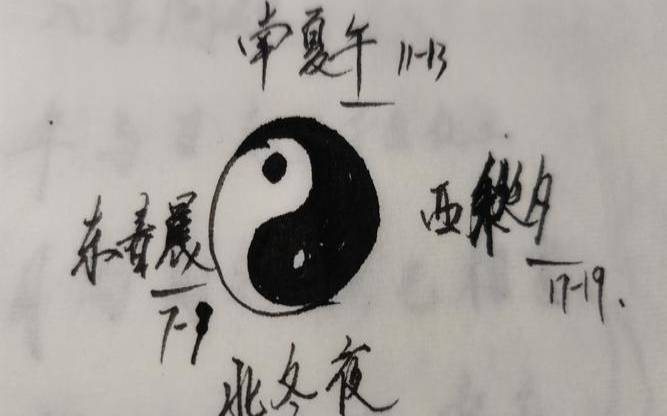 南夏午 11-13
东春晨
7-9
西秋夕
17-19.
北冬夜